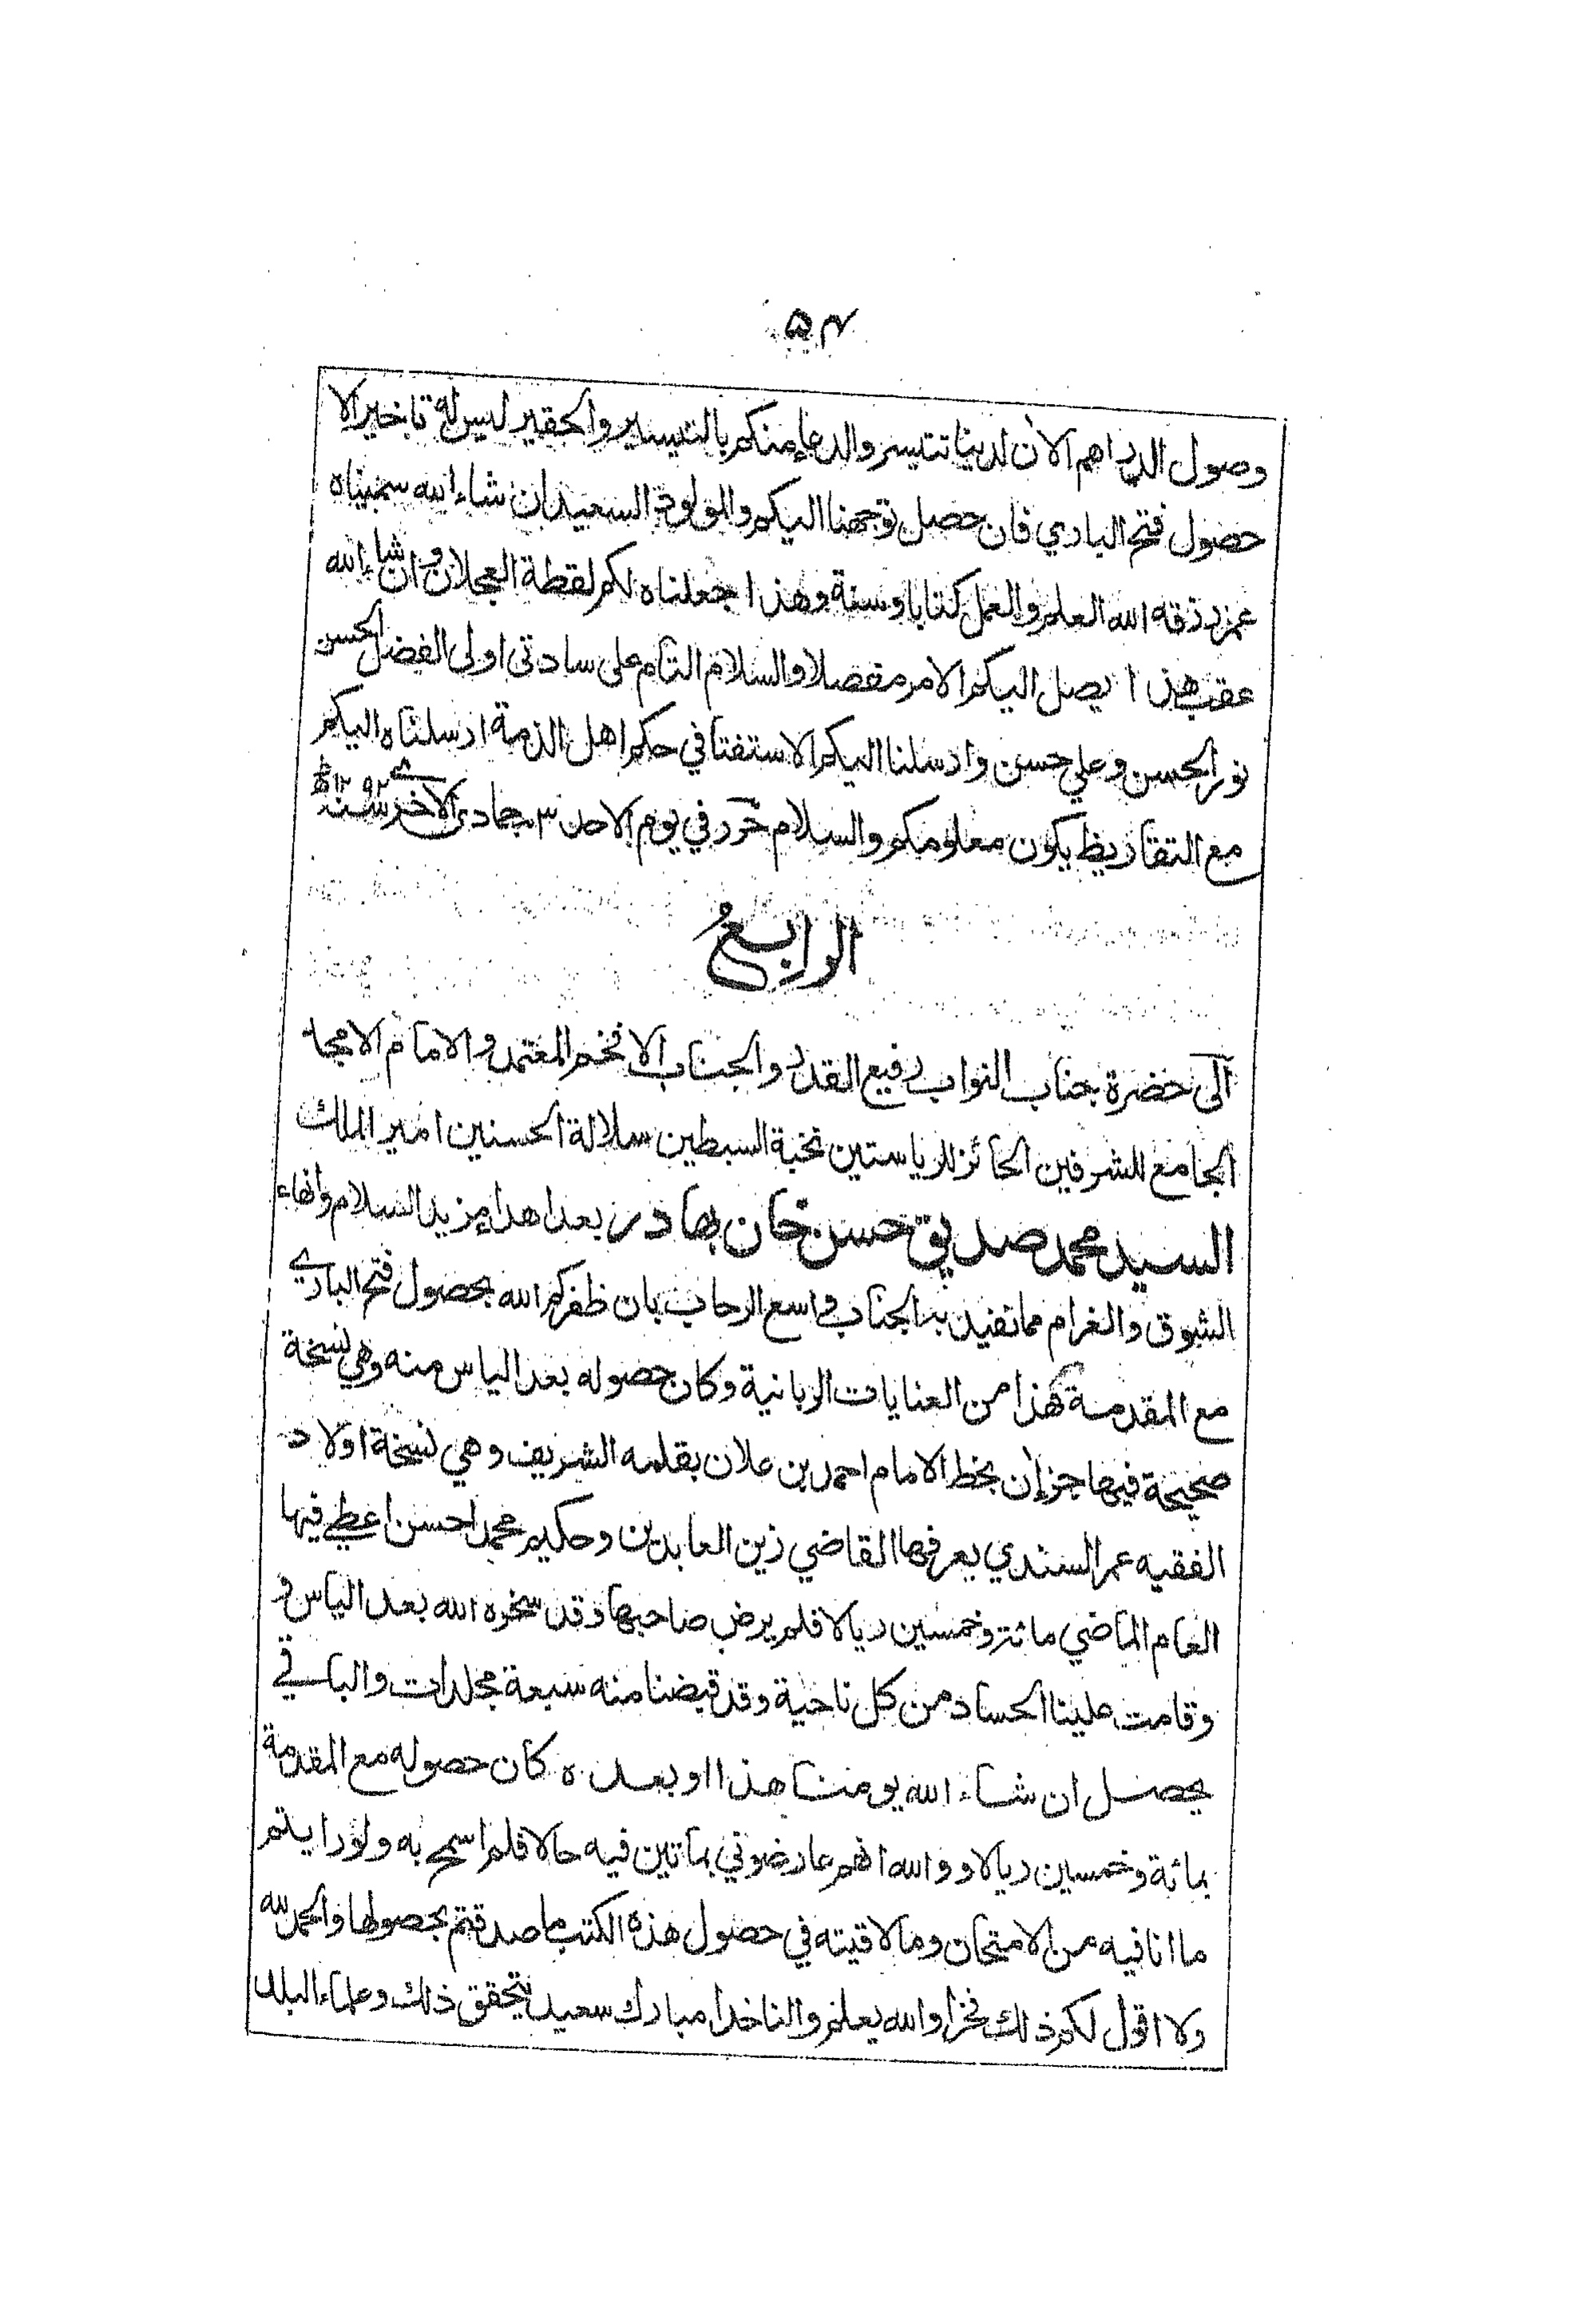 ۵۴
وصول الدراهم الان لدينا تتيسر والدعاء منكم بالتيسير والحقير ليس له تاخير الا
حصول فتح الباري فان حصل توجهنا اليكم والمولود السعيد ان شاء الله سميناه
عمر رزقه الله العلم والعمل كتابا وسنة وهذا جعلناه لكم لقطة العجلان وان شاء الله
عقب هذا يصل اليكم الامر مفصلا والسلام التام على سادتى اولى الفضل الحسن
نور الحسن وعلي حسن وارسلنا اليكم الاستفتا في حكم اهل الذمة ارسلناه اليكم
مع التقاريظ يكون معلومكم والسلام حرر في يوم الاحد ٣ جمادى الاخرى سنة ١٢٩٢ﻫ
الرابعُ
آلى حضرة جناب النواب رفيع القدر والجناب الافخم المعتمد والامام الامجد
الجامع للشرفين الحائز للرياستين نخبة السبطين سلالة الحسنين امير الملك
السيد محمد صديق حسن خان بهادر بعد اهداء مزيد السلام وانهاء
الشوق والغرام مما نفيد به الجناب واسع الرحاب بان ظفركم الله بحصول فتح الباري
مع المقدمة هذا من العنايات الربانية وكان حصوله بعد الياس منه وهي نسخة
صحيحة فيها جزان بخط الامام احمد بن علان بقلمه الشريف وهي نسخة اولاد
الفقيه عمر السندي يعرفها القاضي زين العابدين وحكيم محمد احسن اعطي فيها
العام الماضي مائة وخمسين ريالا فلم يرض صاحبها وقد سخره الله بعد الياس و
وقامت علينا الحساد من كل ناحية وقد قبضنا منه سبعة مجلدات والباقي
يحصل ان شاء الله يومنا هذا او بعده كان حصوله مع المقدمة
بمائة وخمسين ريالا و والله انهم عارضوني بماتين فيه حالا فلم اسمح به ولو رايتم
ما انا فيه من الامتحان وما لاقيته في حصول هذه الكتب ما صدقتم بحصولها والحمد لله
ولا اقول لكم ذلك فخرا والله يعلم والناخدا مبارك سعيد يتحقق ذلك وعلماء البلد